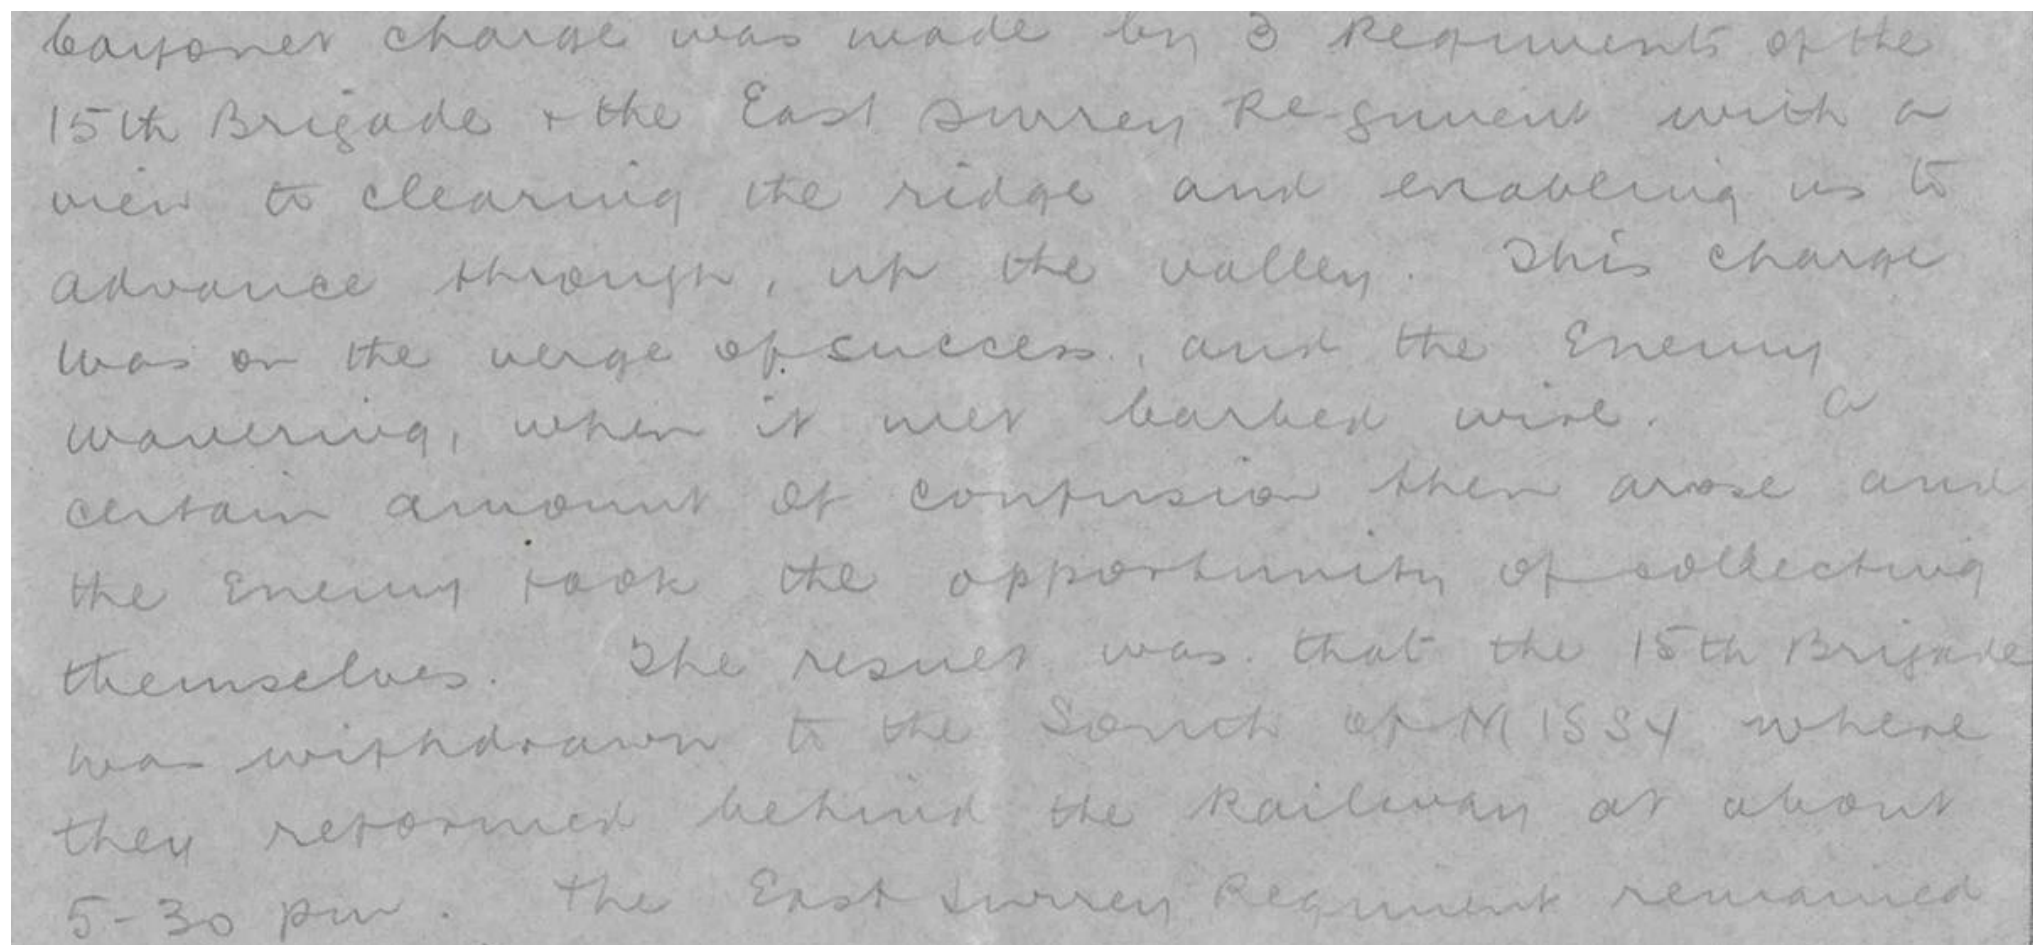 bayonet charge was made by 3 Regiments of the
15th Brigade + the East Surrey Regiment with a
view to clearing the ridge and enabling us to
advance through, up the valley. This charge
was on the verge of success, and the Enemy
wavering, when it met barbed wire. a
certain amount of confusion then arose and
the Enemy took the opportunity of collecting
themselves. The result was that the 15th Brigade
was withdrawn to the South of MISSY where
they reformed behind the Railway at about
5-30 pm. The East Surrey Regiment remained